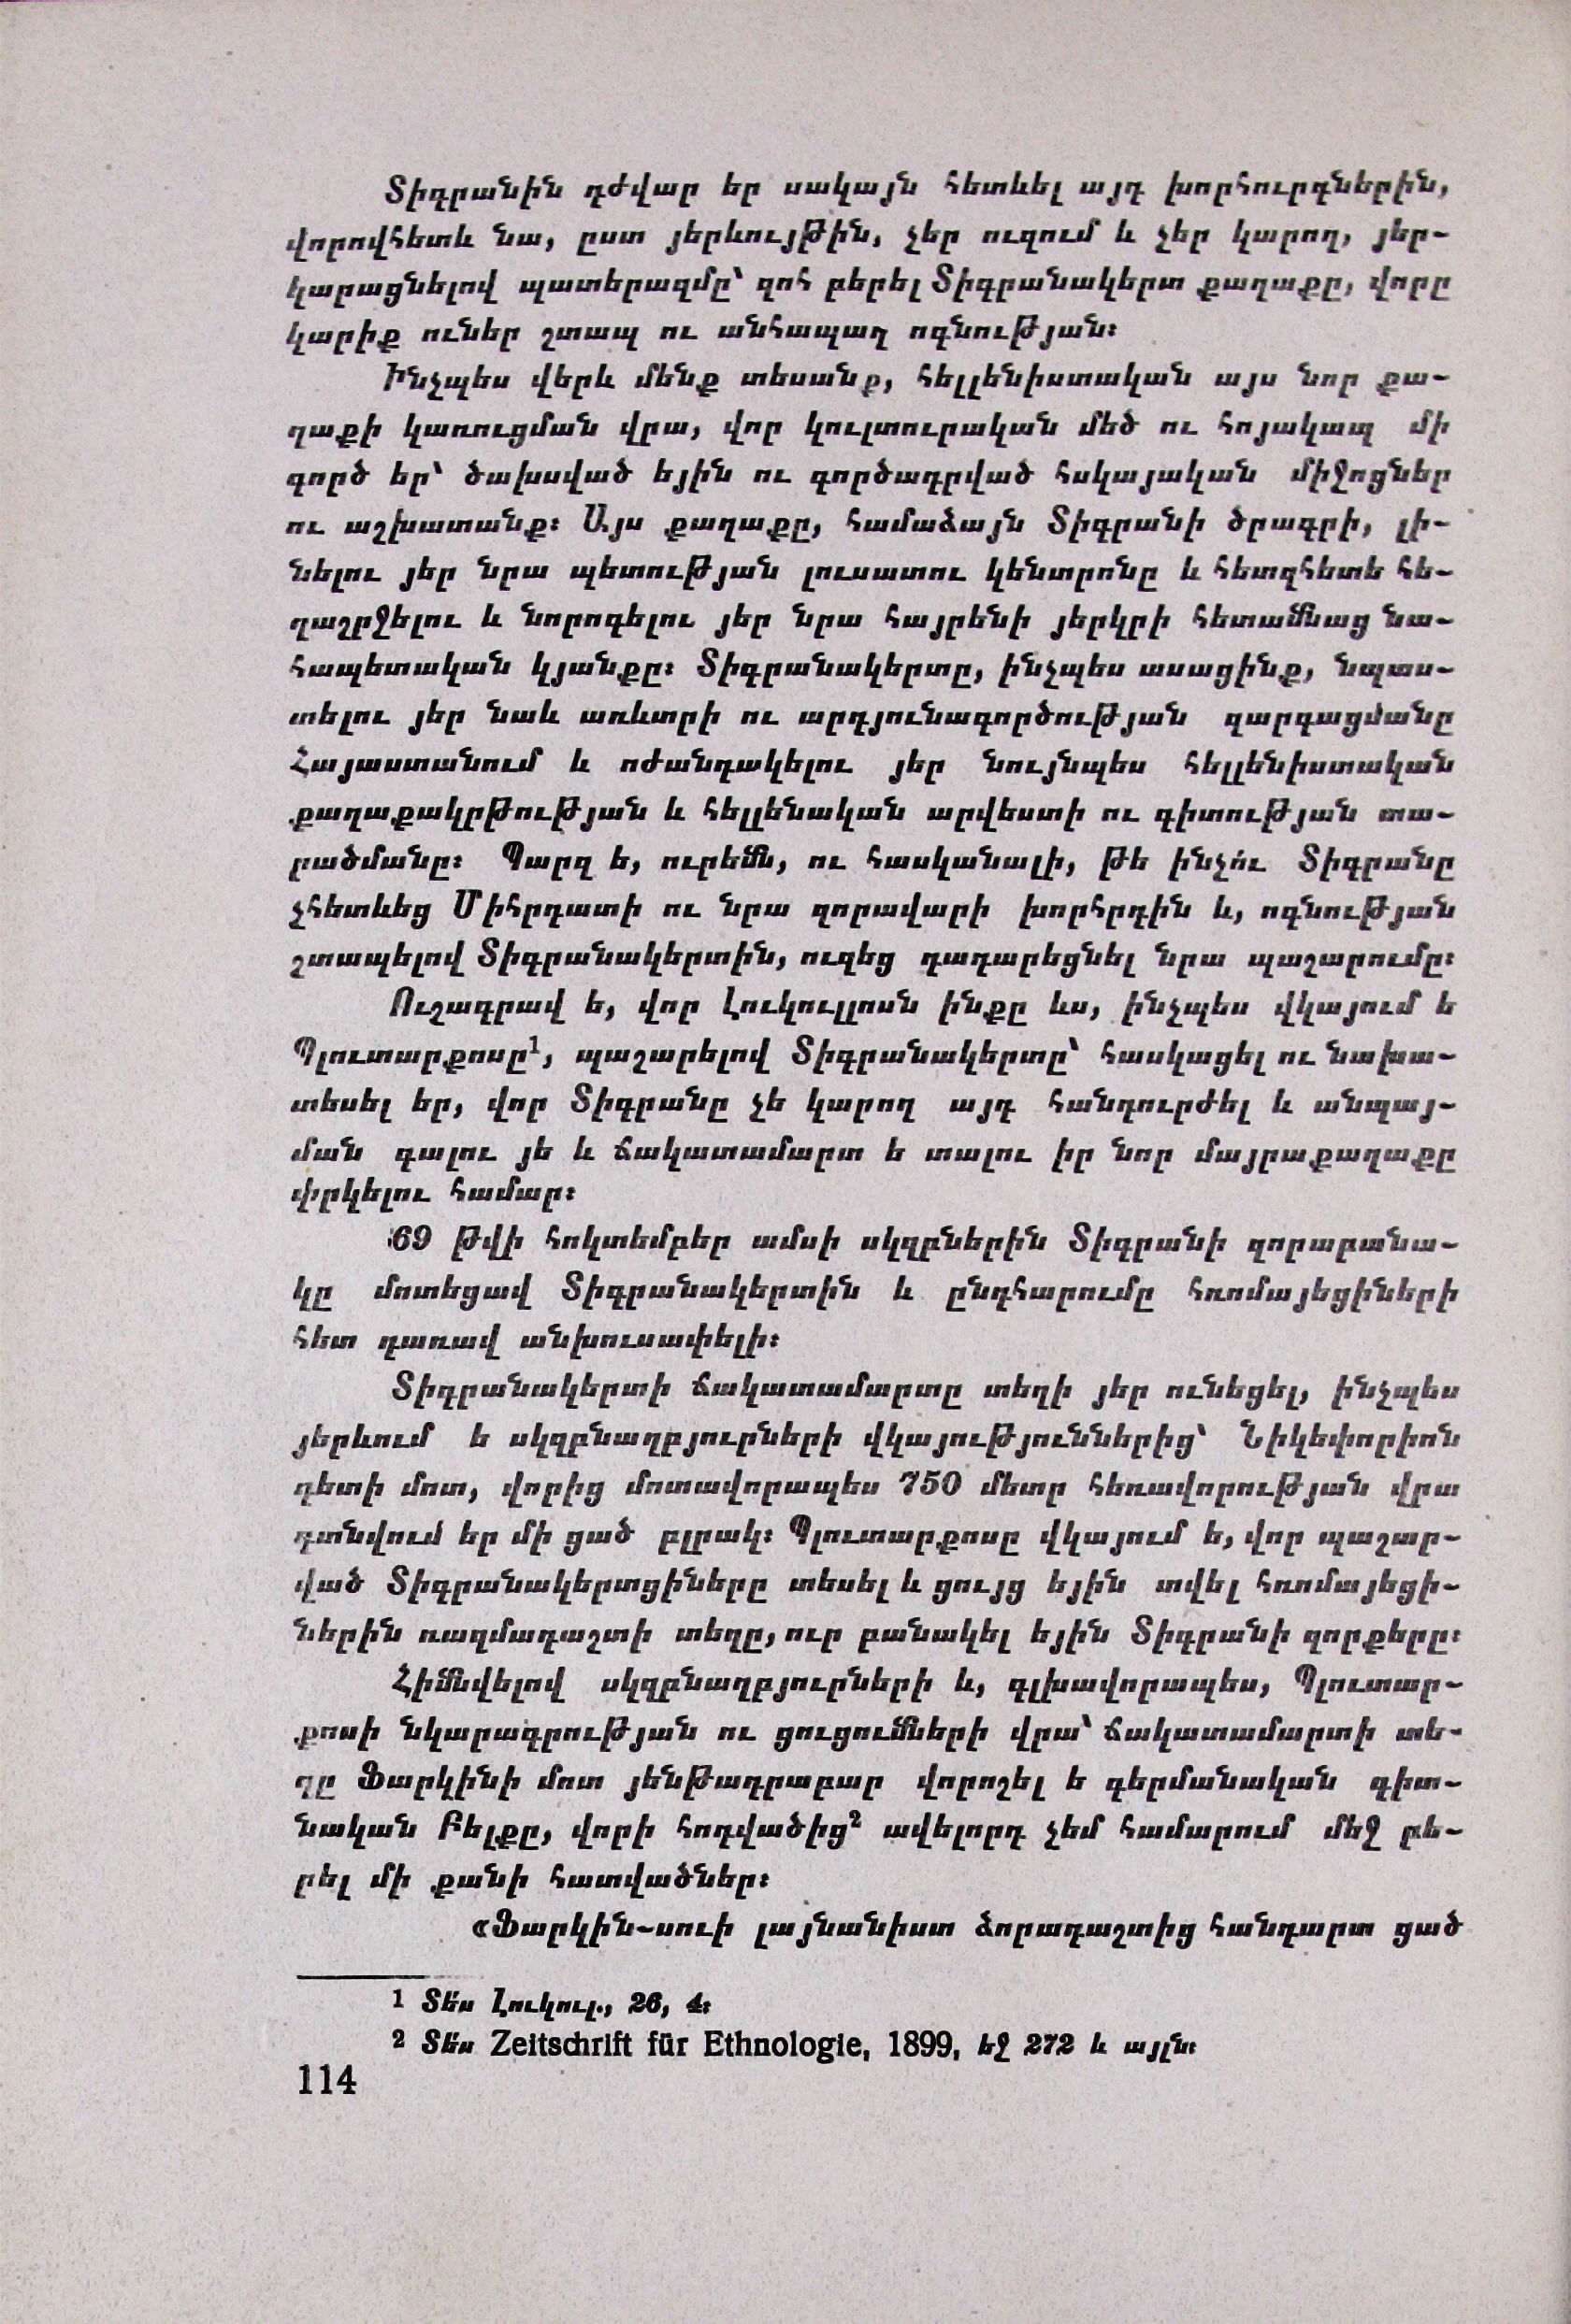 Տիգրանին դժվար եր սակայն հետևել այդ խորհուրդներին,
վորովհետև նա, ըստ յերևույթին, չեր ուզում և չեր կարող, յեր-
կարացնելով պատերազմը՝ զոհ բերել Տիգրանակերտ քաղաքը, վորը
կարիք ուներ շտապ ու անհապաղ ոգնության։
Ինչպես վերև մենք տեսանք, հելլենիստական այս նոր քա-
ղաքի կառուցման վրա, վոր կուլտուրական մեծ ու հոյակապ մի
գործ եր՝ ծախսված եյին ու գործադրված հսկայական միջոցներ
ու աշխատանք։ Այս քաղաքը, համաձայն Տիգրանի ծրագրի, լի-
նելու յեր նրա պետության լուսատու կենտրոնը և հետզհետե հե-
ղաշրջելու և նորոգելու յեր նրա հայրենի յերկրի հետամնաց նա-
հապետական կյանքը։ Տիգրանակերտը, ինչպես ասացինք, նպաս-
տելու յեր նաև առևտրի ու արդյունագործության զարգացմանը
Հայաստանում և ոժանդակելու յեր նույնպես հելլենիստական
քաղաքակրթության և հելլենական արվեստի ու գիտության տա-
րածմանը։ Պարզ ե, ուրեմն, ու հասկանալի, թե ինչո՛ւ Տիգրանը
չհետևեց Միհրդատի ու նրա զորավարի խորհրդին և, ոգնության
շտապելով Տիգրանակերտին, ուզեց դադարեցնել նրա պաշարումը։
Ուշագրավ ե, վոր Լուկուլլոսն ինքը ևս, ինչպես վկայում ե
Պլուտարքոսը¹, պաշարելով Տիգրանակերտը՝ հասկացել ու նախա-
տեսել եր, վոր Տիգրանը չե կարող այդ հանդուրժել և անպայ-
ման գալու յե և ճակատամարտ ե տալու իր նոր մայրաքաղաքը
փրկելու համար։
69 թվի հոկտեմբեր ամսի սկզբներին Տիգրանի զորաբանա-
կը մոտեցավ Տիգրանակերտին և ընդհարումը հռոմայեցիների
հետ դառավ անխուսափելի։
Տիգրանակերտի ճակատամարտը տեղի յեր ունեցել, ինչպես
յերևում ե սկզբնաղբյուրների վկայություններից՝ Նիկեփորիոն
գետի մոտ, վորից մոտավորապես 750 մետր հեռավորության վրա
գտնվում եր մի ցած բլրակ։ Պլուտարքոսը վկայում ե, վոր պաշար-
ված Տիգրանակերտցիները տեսել և ցույց եյին տվել հռոմայեցի-
ներին ռազմադաշտի տեղը, ուր բանակել եյին Տիգրանի զորքերը։
Հիմնվելով սկզբնաղբյուրների և, գլխավորապես, Պլուտար-
քոսի նկարագրության ու ցուցումների վրա՝ ճակատամարտի տե-
ղը Ֆարկինի մոտ յենթադրաբար վորոշել ե գերմանական գիտ-
նական Բելքը, վորի հոդվածից² ավելորդ չեմ համարում մեջ բե-
րել մի քանի հատվածներ։
«Ֆարկին-սուի լայնանիստ ձորադաշտից հանդարտ ցած
1 Տե՛ս Լուկուլ., 26, 4։
2 Տե՛ս Zeitschrift für Ethnologie, 1899, եջ 272 և այլն։
114